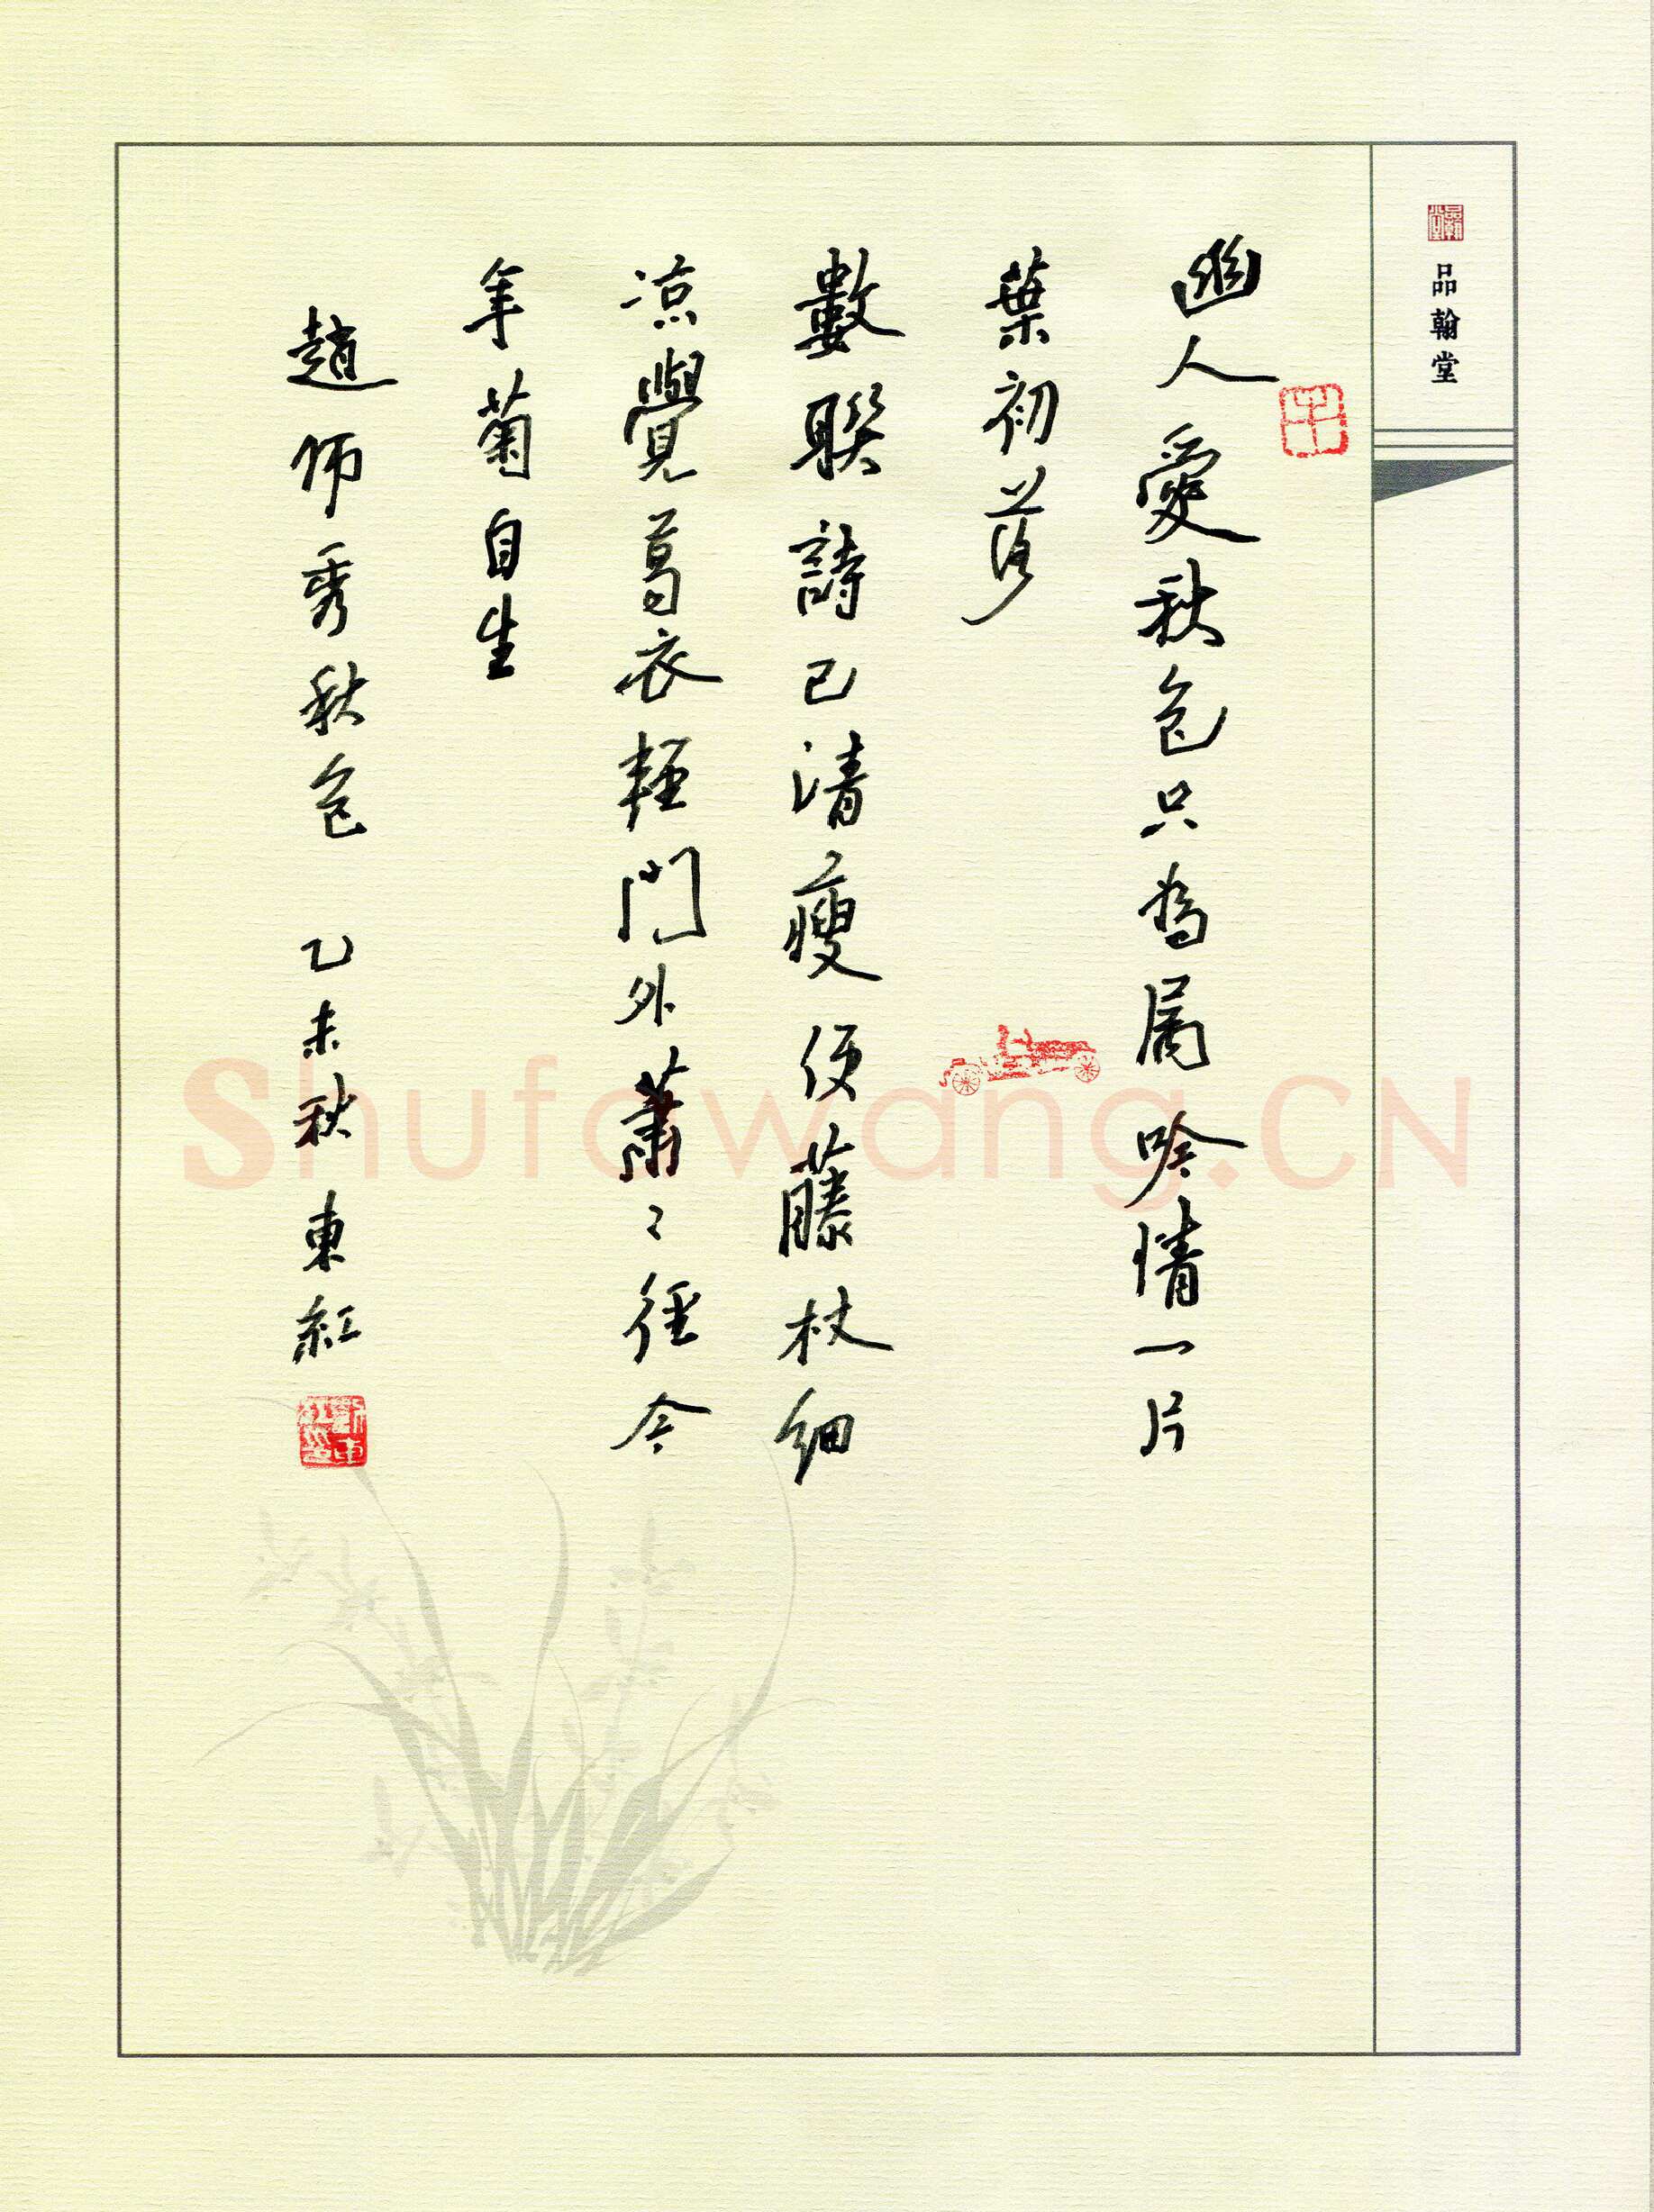 品翰堂
幽人愛秋色只為屬吟情一片
葉初落
數聯詩已清瘦便藤杖細
凉覺葛衣輕門外蕭〻徑今
年菊自生
趙師秀秋色 乙未秋 東紅
Shufawang.CN